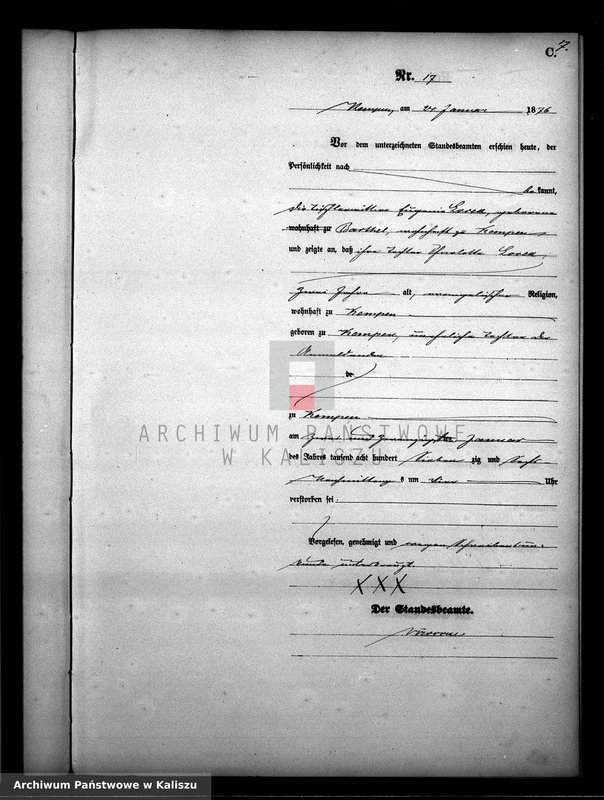 17.
C.
Nr. 17
Kempen, am 24 Januar 1876
Vor dem unterzeichneten Standesbeamten erschien heute, der
Persönlichkeit nach
be kannt,
die Eugenie Lorek, geborene
wohnhaft zu Barthel, wohnhaft zu Kempen
und zeigte an, daß ihre Tochter Charlotte Lorek,
Zwei Jahre alt, evangelischer Religion,
wohnhaft zu Kempen
geboren zu Kempen, uneheliche Tochter der
Anmeldenden
zu Kempen
am Zwei und zwanzigsten Januar
des Jahres tausend acht hundert Sieben zig und Sechs
Nachmittags um Uhr
verstorben sei.
Vorgelesen, genehmigt und wegen Schreibens
unterkreuzt
XXX
Der Standesbeamte.
ARCHIWUM PAŃSTWOWE
W KALISZU
Archiwum Państwowe w Kaliszu